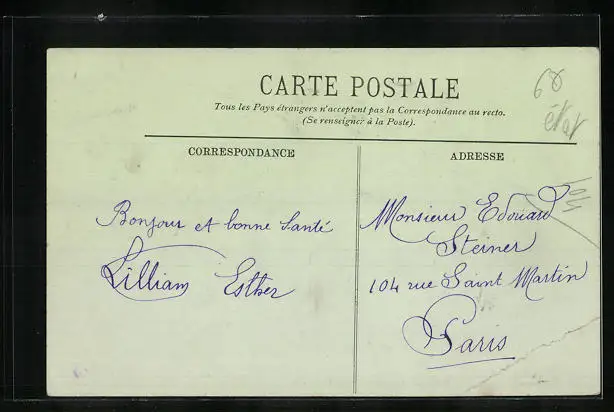 CARTE POSTALE
Tous les Pays étrangers n'acceptent pas la Correspondance au recto.
(Se renseigner à la Poste).
CORRESPONDANCE
ADRESSE
Bonjour et bonne Santé
Lilliam Esther
Monsieur Edouard
Steiner
104 rue Saint Martin
Paris
60
état